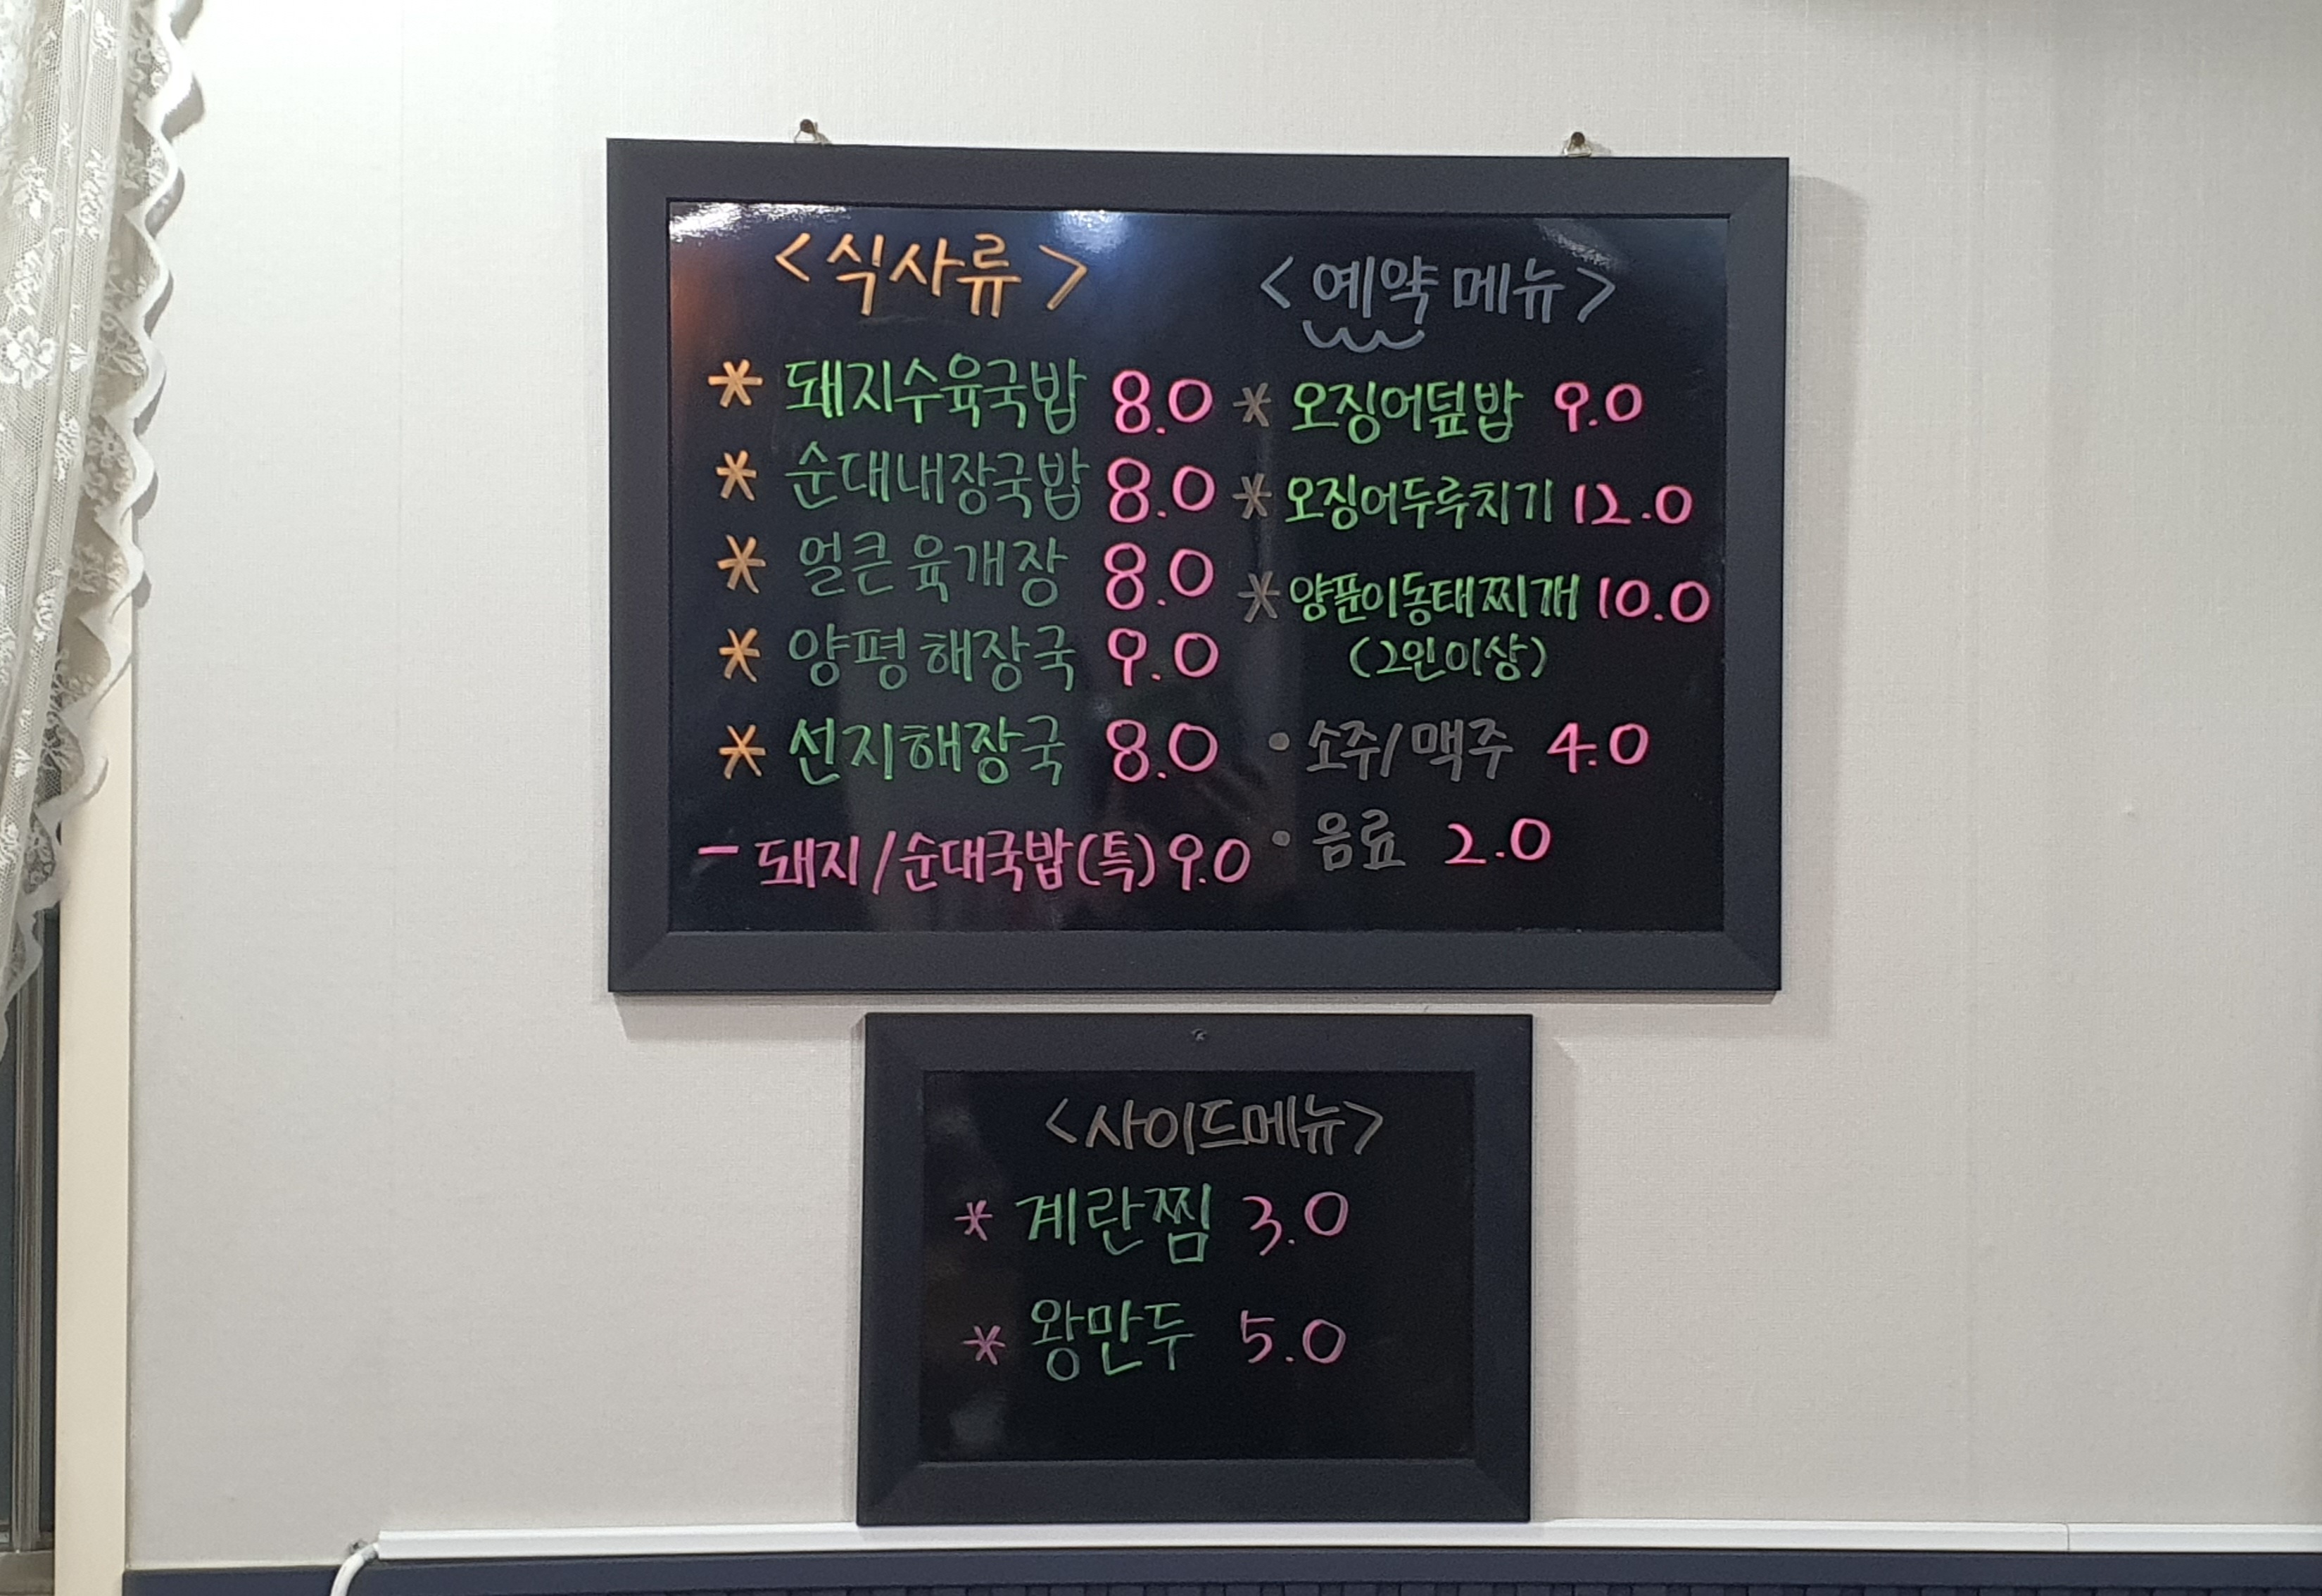 <식사류>
* 돼지수육국밥 8.0
* 순대내장국밥 8.0
* 얼큰육개장 8.0
* 양평해장국 9.0
* 선지해장국 8.0
- 돼지/순대국밥(특) 9.0
<예약메뉴>
* 오징어덮밥 9.0
* 오징어두루치기 12.0
* 양푼이동태찌개 10.0
(2인이상)
• 소주/맥주 4.0
• 음료 2.0
<사이드메뉴>
* 계란찜 3.0
* 왕만두 5.0